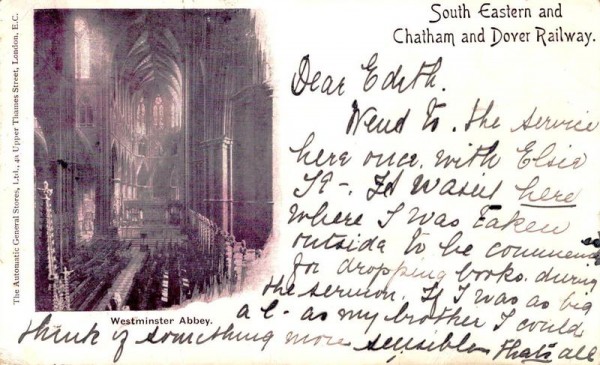 South Eastern and
Chatham and Dover Railway.
The Automatic General Stores, Ltd., 42 Upper Thames Street, London, E.C.
Westminster Abbey.
Dear Edith.
Went to. the service
here once. with Elsie
It wasn't here
where I was taken
outside to be
for dropping books. during
the sermon. If I was as big
a as my brother I could
think of something more sensible. that's all